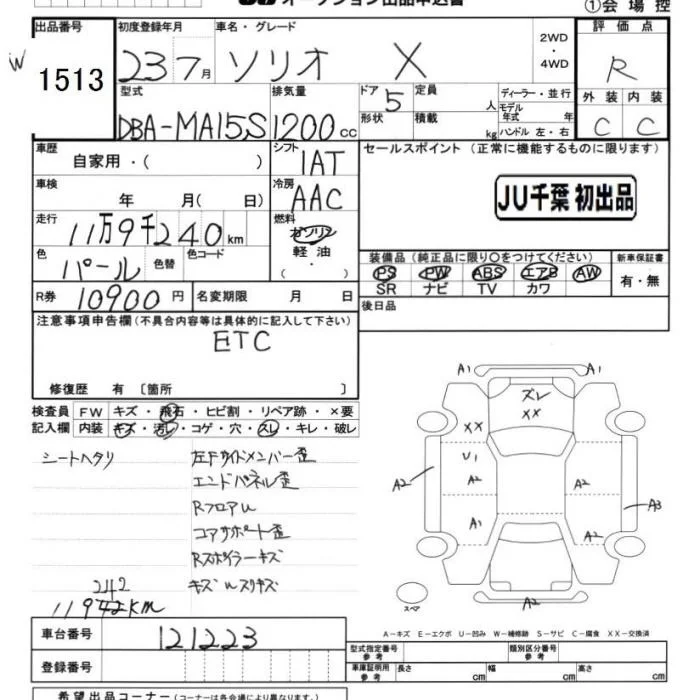 オークション出品申込書
①会場控
出品番号 初度登録年月 車名・グレード 2WD・4WD 評価点
W
1513
23 7月 ソリオ X R
型式 排気量 ドア 5 定員 人 ディーラー・並行
外装 内装
DBA-MA15S 1200cc 形状 積載 kg モデル年式 年 ハンドル 左・右
C C
車歴 自家用・( ) シフト 1AT セールスポイント (正常に機能するものに限ります)
車検 年 月( 日) 冷房 AAC
JU千葉 初出品
走行 11万9千240km 燃料 ガソリン 軽油・( )
色 パール 色替 色コード
装備品 (純正品に限り〇をつけてください) 新車保証書
PS PW ABS エアB AW 有・無
SR ナビ TV カワ
R券 10900円 名変期限 月 日 後日品
注意事項申告欄(不具合内容等は具体的に記入して下さい)
ETC
修復歴 有 〔箇所 〕
検査員記入欄 FW キズ・飛石・ヒビ割・リペア跡・×要
内装 キズ・汚レ・コゲ・穴・スレ・キレ・破レ
シートヘタリ 左Fサイドメンバー歪
エンドパネル歪
RフロアU
コアサポート歪
Rスポイラーキズ
キズUスリキズ
242
11942KM
A1 A1
ズレ
XX
XX
U1
A2 A2 A2 A3
A1 A2
スペア A2
A-キズ E-エクボ U-凹み W-補修跡 S-サビ C-腐食 XX-交換済
車台番号 121223
型式指定番号 参考 類別区分番号 参考
登録番号 車庫証明用 参考 長さ cm 幅 cm 高さ cm
希望出品コーナー (コーナーは各会場により異なります。)